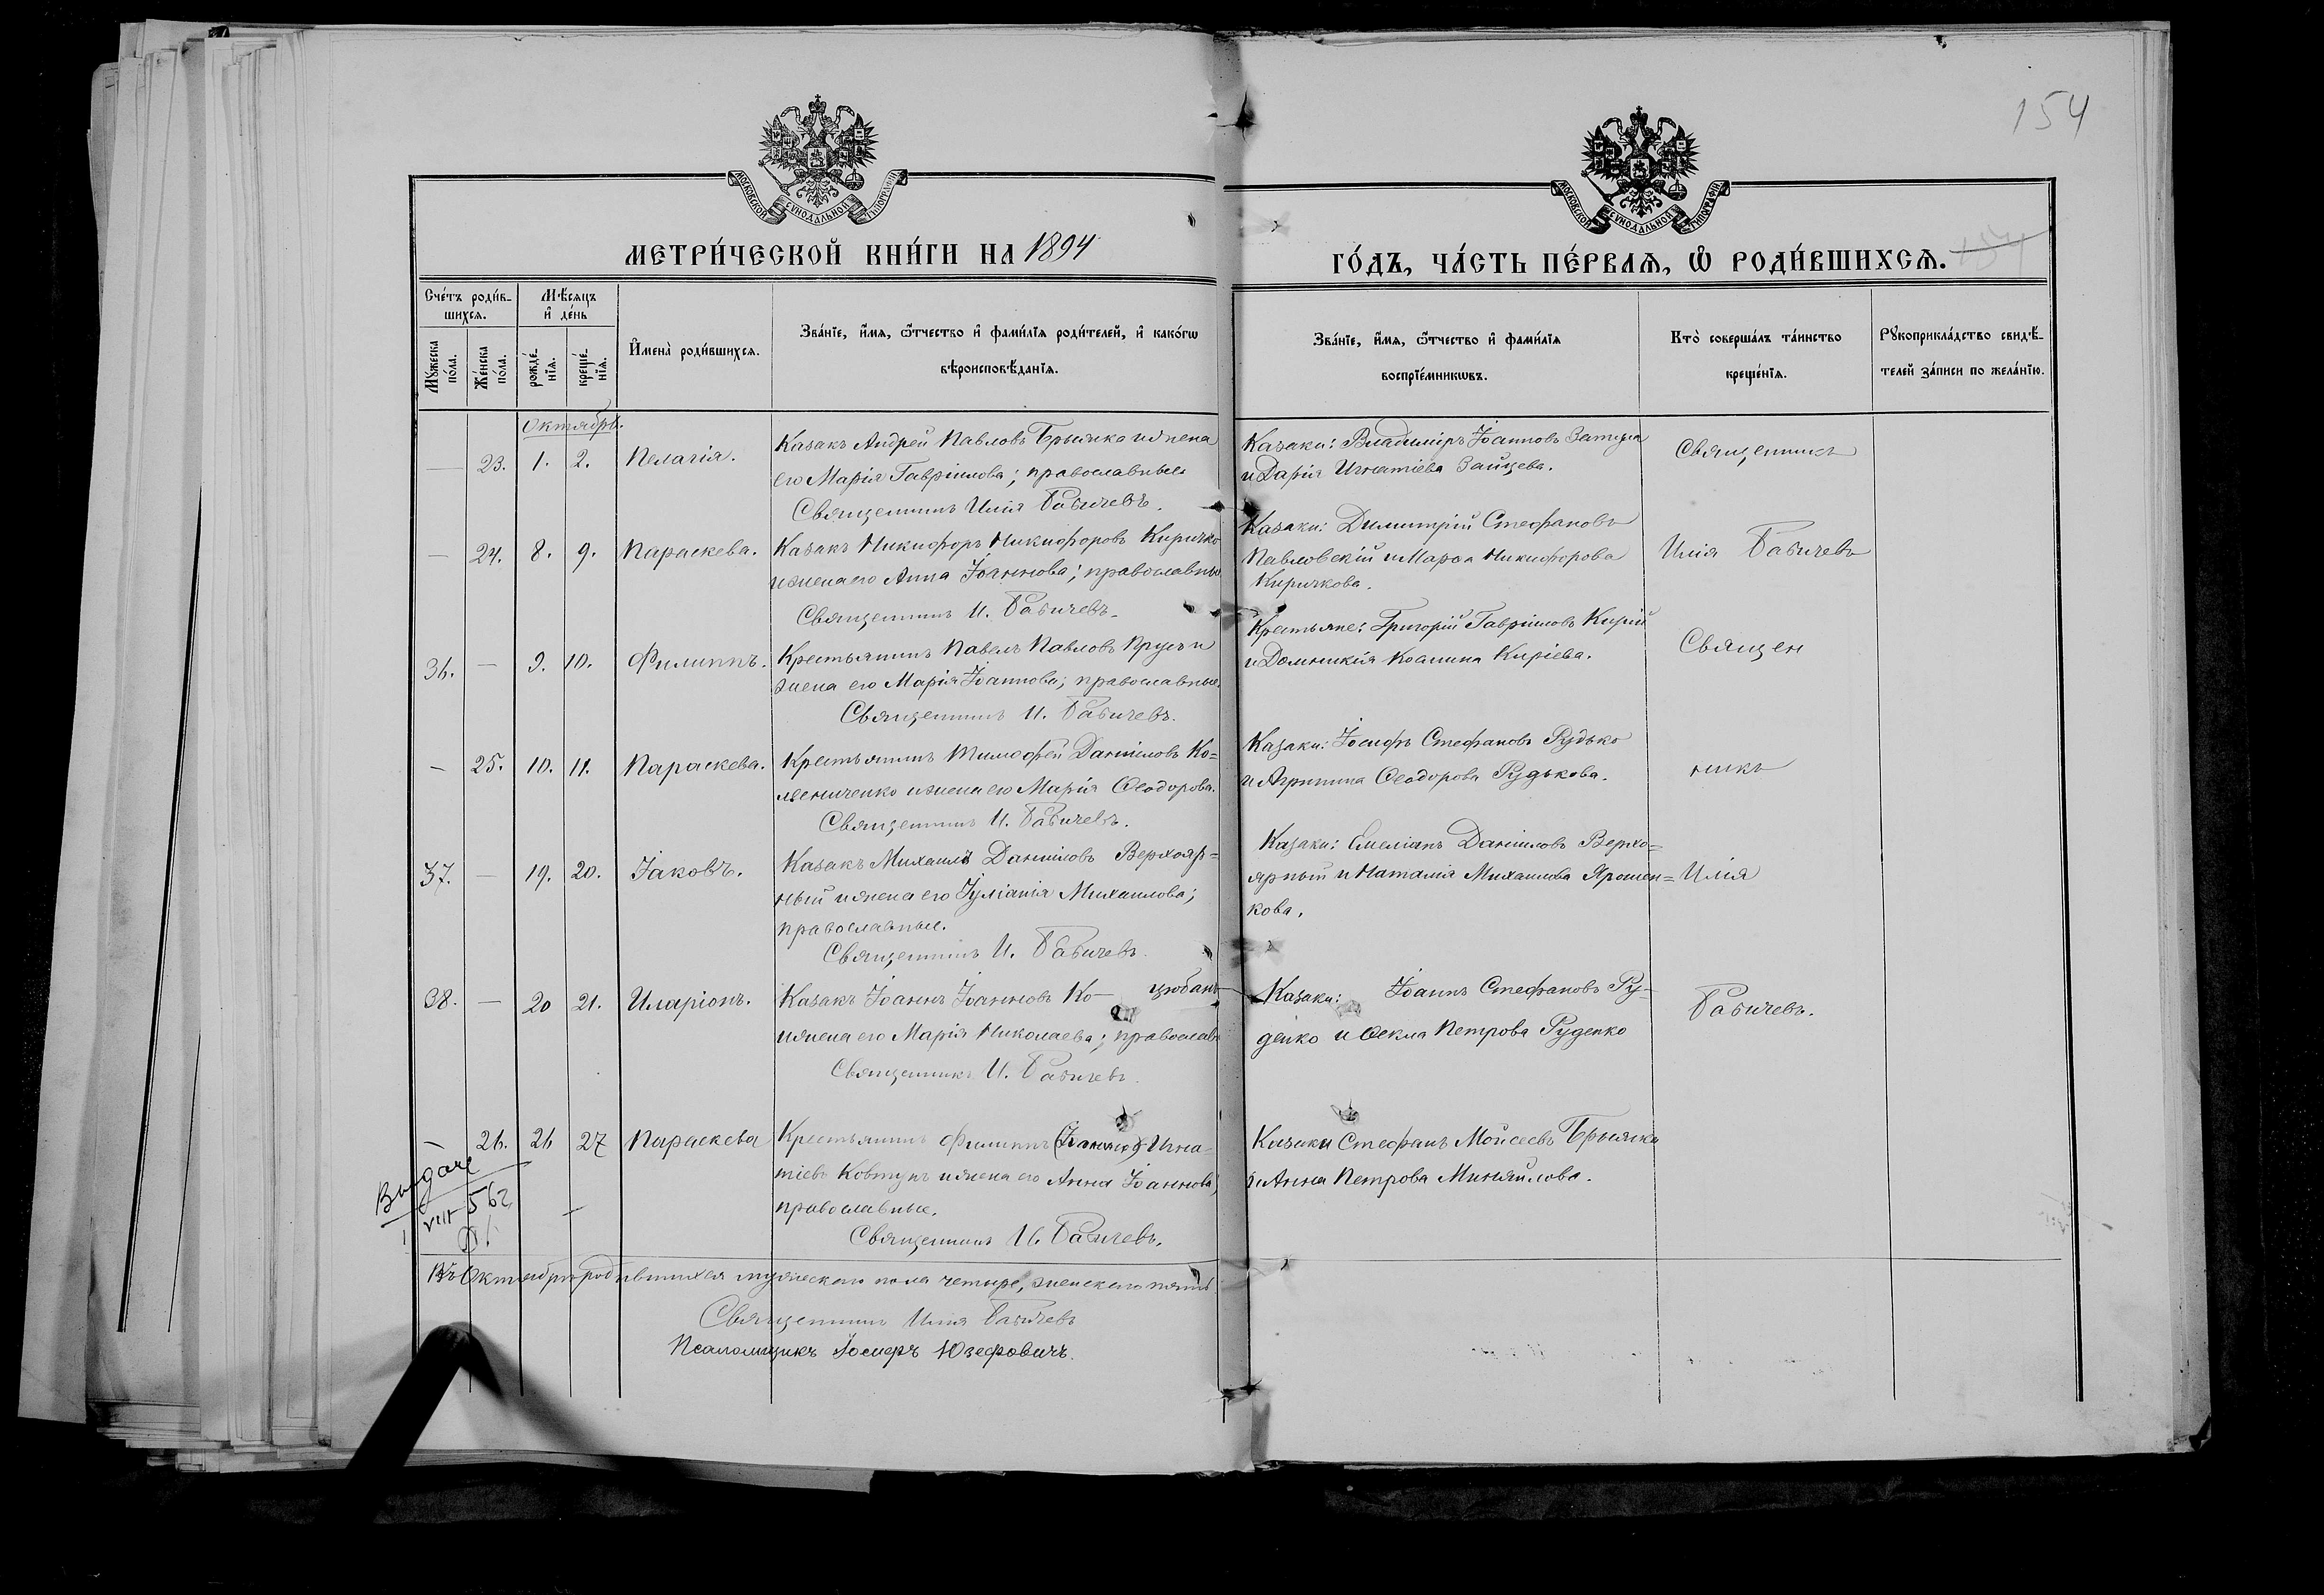 154
МОСКОВСКОЙ СѴНОДАЛЬНОЙ ТѴПОГРАФІИ
МОСКОВСКОЙ СѴНОДАЛЬНОЙ ТѴПОГРАФІИ
МЕТРИ́ЧЕСКОЙ КНИ́ГИ НА 1894
ГО́ДЪ, ЧА́СТЬ ПЕ́РВАѦ, Ѡ РОДИ́ВШИХСѦ.
Сче́тъ роди́в-
шихсѧ.
Мꙋжеска по́ла.
Же́нска по́ла.
Мѣ́сѧцъ
и҆ де́нь
рожде́-
нїѧ.
креще́-
нїѧ.
И҆мена̀ роди́вшихсѧ.
Зва́нїе, и҆́мѧ, ѻ҆́тчество и҆ фами́лїѧ роди́телей, и҆ како́гѡ
вѣроисповѣ́данїѧ.
Зва́нїе, и҆́мѧ, ѻ҆́тчество и҆ фами́лїѧ
воспрїе́мникѡвъ.
Кто̀ соверша́лъ та́инство
креще́нїѧ.
Рꙋкоприкла́дство свидѣ́-
телей за́писи по жела́нїю.
Октябрь.
— 23. 1. 2. Пелагія. Казакъ Андрей Павловъ Брынка и жена
его Марія Гавріилова; православные
Священникъ Илія Бабичевъ.
Казаки: Владиміръ Іоанновъ
и Дарія Игнатіева Зайцева.
Священникъ
— 24. 8. 9. Параскева. Казакъ Никифоръ Никифоровъ Киричко
и жена его Анна Іоаннова; православные
Священникъ И. Бабичевъ.
Казаки: Димитрій Стефановъ
Павловскій и Марѳа Никифорова
Киричкова.
Илія Бабичевъ
36. — 9. 10. Филиппъ. Крестьянинъ Павелъ Павловъ Прусъ и
жена его Марія Іоаннова; православные.
Священникъ И. Бабичевъ.
Крестьяне: Григорій Гавріиловъ Кирій
и Домникія Кирієва.
Священ
— 25. 10. 11. Параскева. Крестьянинъ Тимофей Даніиловъ Ко=
лѣсниченко и жена его Марія Ѳеодорова.
Священникъ И. Бабичевъ.
Казаки: Іосифъ Стефановъ Рудько
и Агрипина Ѳеодорова Рудькова.
никъ
37. — 19. 20. Іаковъ. Казакъ Михаилъ Даніиловъ Верхояр=
ный и жена его Іуліанія Михаилова;
православные.
Священникъ И. Бабичевъ.
Казаки: Емеліанъ Даніиловъ Верхо=
ярный и Наталія Михаилова Ярошен=
кова.
Илія
38. — 20 21. Иларіонъ. Казакъ Іоаннъ Іоанновъ Ко— цюбанъ
и жена его Марія Николаева; православ
Священникъ И. Бабичевъ.
Казаки: Іоаннъ Стефановъ Ру-
денко и Ѳекла Петрова Руденко
Бабичевъ.
— 26. 26 27 Параскева Крестьянинъ Филиппъ Игна-
тіевъ Ковтунъ и жена его Анна Іоаннова;
православные.
Священникъ И. Бабичевъ.
Казаки Стефанъ Мойсеевъ Брынка
и Анна Петрова Миняйлова.
562
Въ Октябрѣ родившихся мужескаго пола четыре, женскаго пять
Священникъ Илія Бабичевъ
Псаломщикъ Іосифъ Юзефовичъ.